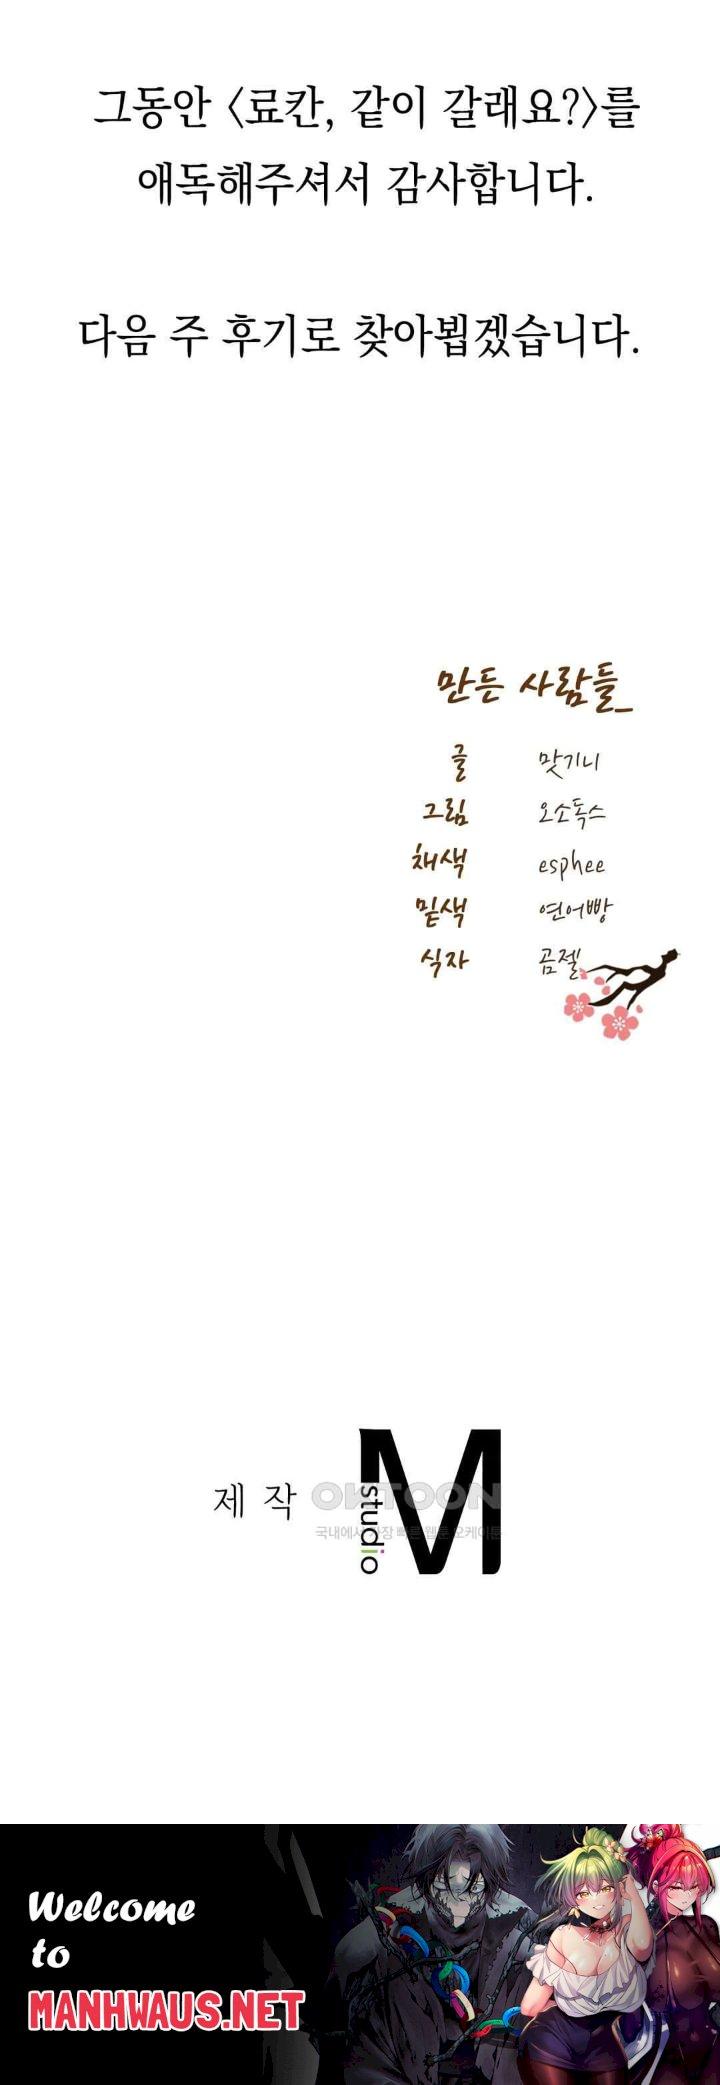 그동안 〈료칸, 같이 갈래요?〉를
애독해주셔서 감사합니다.
다음 주 후기로 찾아뵙겠습니다.
만든 사람들_
글 맛기니
그림 오소독스
채색 esphee
밑색 연어빵
식자 곰젤
제작 M studio
OKTOON
국내에서 가장 빠른 웹툰 오케이툰
Welcome
to
MANHWAUS.NET